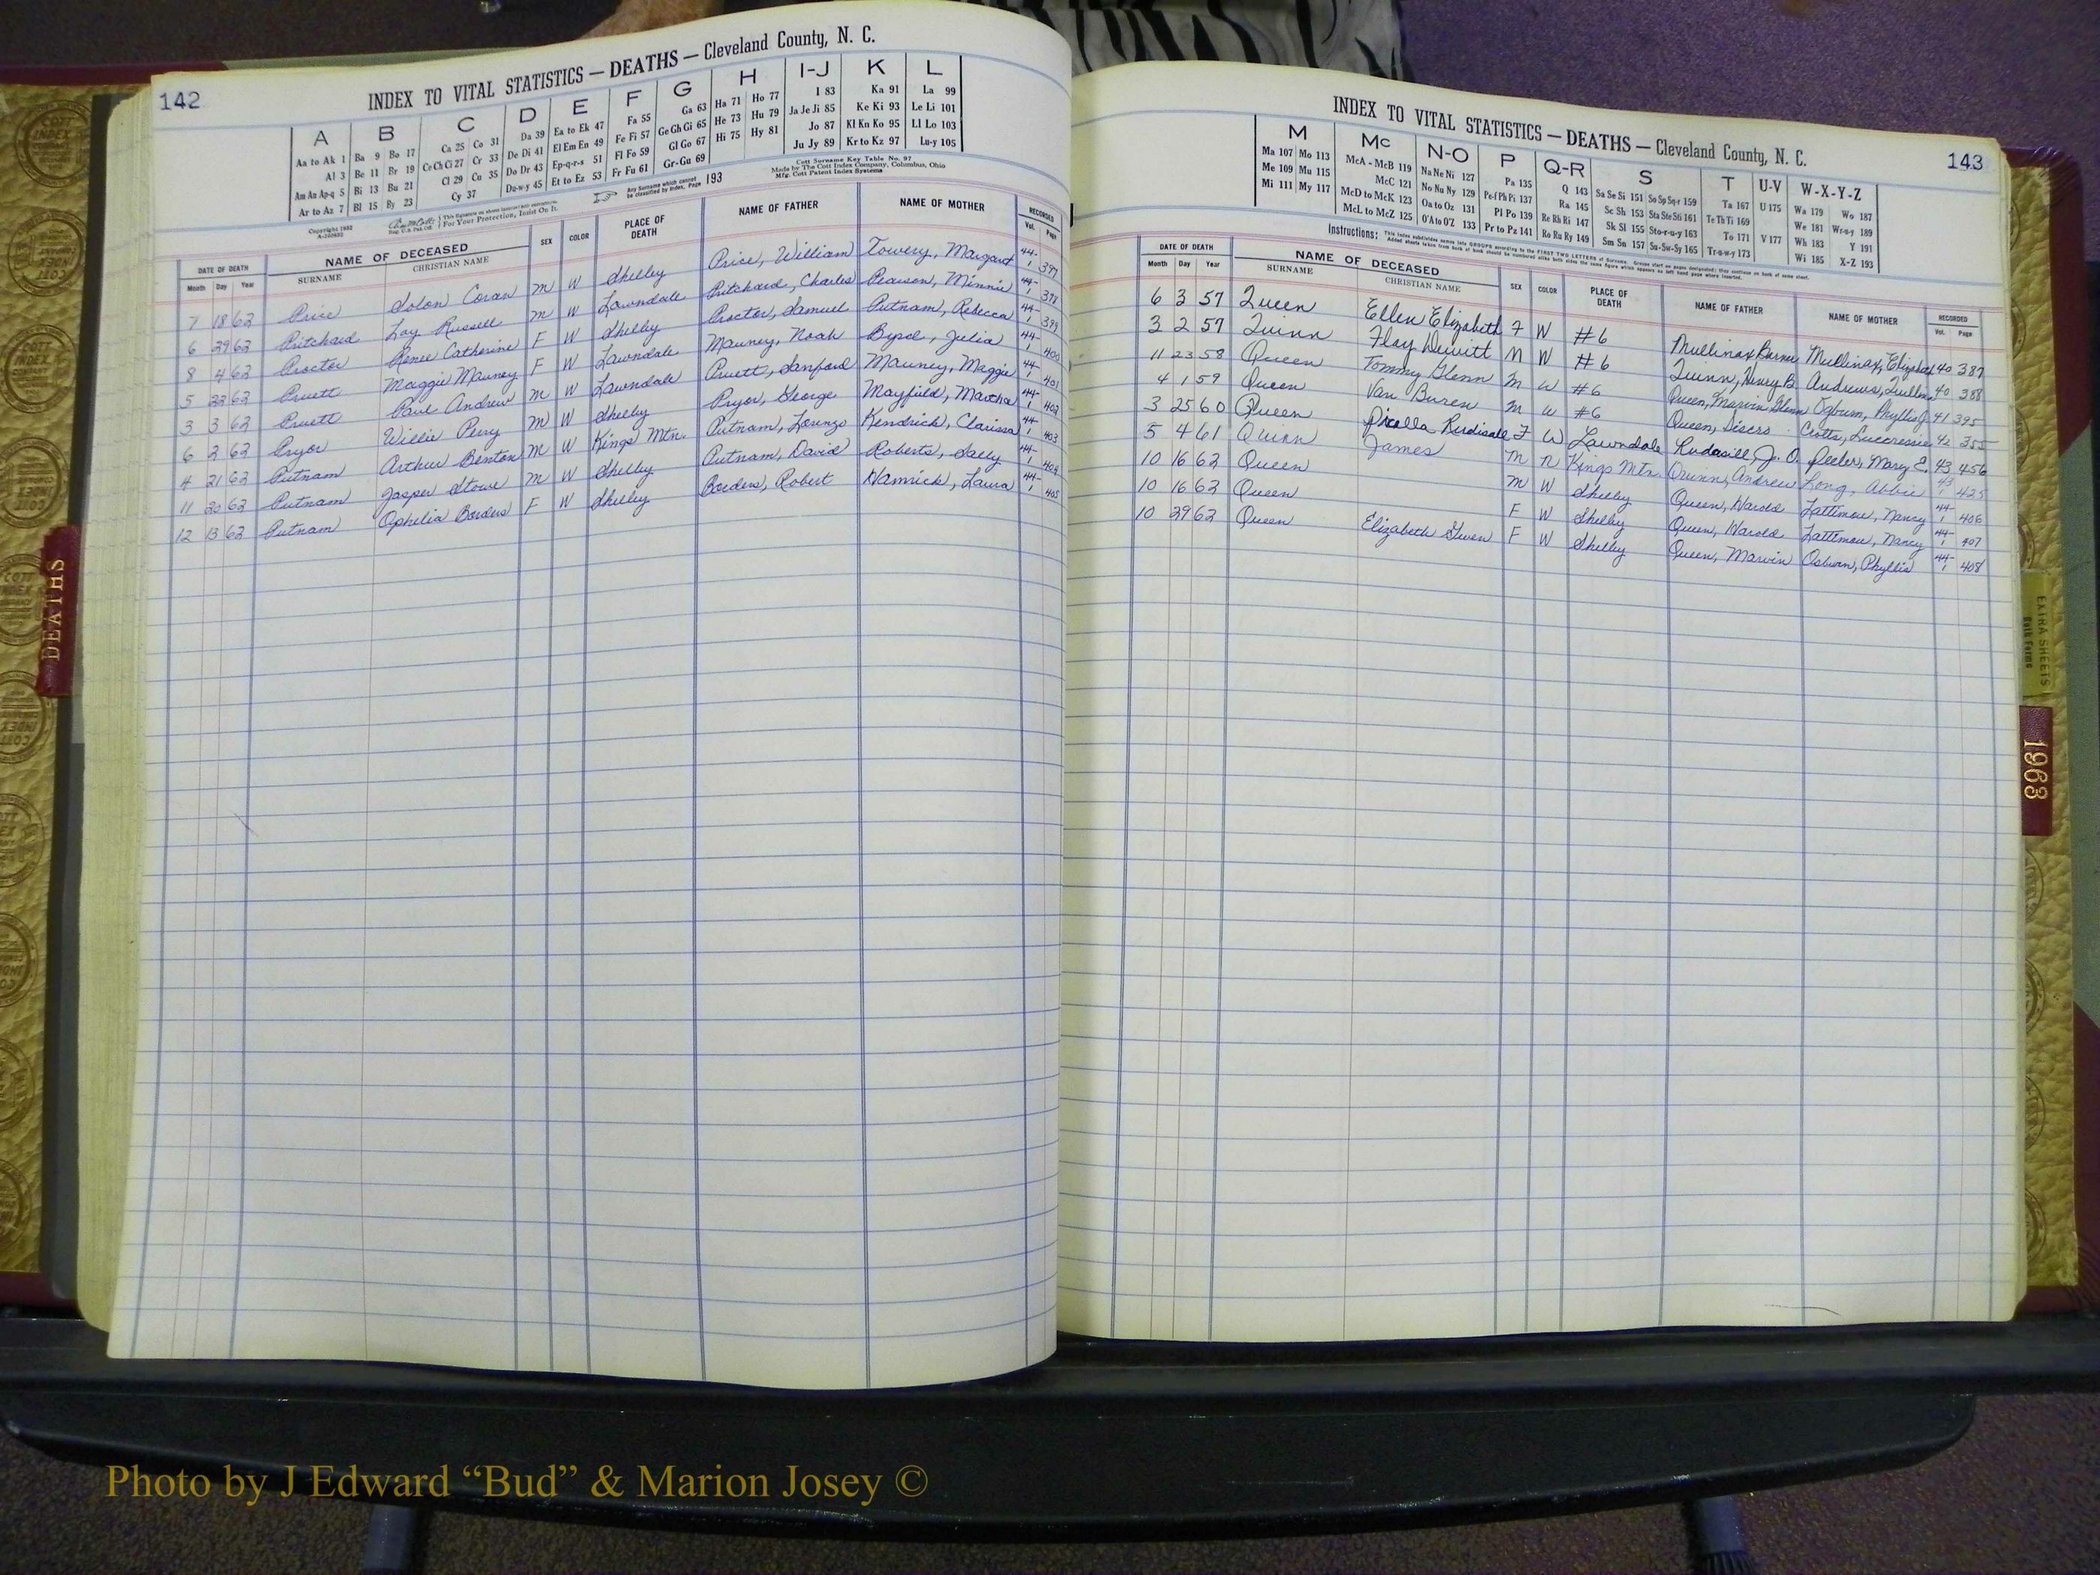 142
INDEX TO VITAL STATISTICS — DEATHS — Cleveland County, N. C.
A B C D E F G H I-J K L
Aa to Ak 1 Ba 9 Bo 17 Ca 25 Co 31 Da 39 Ea to Ek 47 Fa 55 Ga 63 Ha 71 Ho 77 I 83 Ka 91 La 99
Al 3 Be 11 Br 19 Ce Ch Ci 27 Cr 33 De Di 41 El Em En 49 Fe Fi 57 Ge Gh Gi 65 He 73 Hu 79 Ja Je Ji 85 Ke Ki 93 Le Li 101
Am An Ap-q 5 Bi 13 Bu 21 Cl 29 Cu 35 Do Dr 43 Ep-q-r-s 51 Fl Fo 59 Gl Go 67 Hi 75 Hy 81 Jo 87 Kl Kn Ko 95 Ll Lo 103
Ar to Az 7 Bl 15 By 23 Cy 37 Du-w-y 45 Et to Ez 53 Fr Fu 61 Gr-Gu 69 Ju Jy 89 Kr to Kz 97 Lu-y 105
Any Surname which cannot be classified by Index, Page 193
Cott Surname Key Table No. 97
Made by The Cott Index Company, Columbus, Ohio
Mfg. Cott Patent Index Systems
Copyright 1932
For Your Protection, Insist On It.
DATE OF DEATH NAME OF DECEASED SEX COLOR PLACE OF DEATH NAME OF FATHER NAME OF MOTHER RECORDED
Month Day Year SURNAME CHRISTIAN NAME Vol. Page
7 18 62 Price Solon Coran M W Shelby Price, William Towery, Margaret 44-1 397
6 29 62 Pritchard Loy Russell M W Lawndale Pritchard, Charles Pearson, Minnie 44-1 398
8 4 62 Proctor Renee Catherine F W Shelby Proctor, Samuel Putnam, Rebecca 44-1 399
5 22 62 Pruett Maggie Mauney F W Lawndale Mauney, Noah Byrd, Julia 44-1 400
3 3 62 Pruett Paul Andrew M W Lawndale Pruett, Sanford Mauney, Maggie 44-1 401
6 2 62 Pryor Willie Perry M W Shelby Pryor, George Mayfield, Martha 44-1 402
4 21 62 Putnam Arthur Benton M W Kings Mtn. Putnam, Lorenzo Kendrick, Clarissa 44-1 403
11 20 62 Putnam Jasper Stowe M W Shelby Putnam, David Roberts, Sally 44-1 404
12 13 62 Putnam Ophelia Borders F W Shelby Borders, Robert Hamrick, Laura 44-1 405
INDEX TO VITAL STATISTICS — DEATHS — Cleveland County, N. C.
143
M Mc N-O P Q-R S T U-V W-X-Y-Z
Ma 107 Mo 113 McA - McB 119 Na Ne Ni 127 Pa 135 Q 143 Sa Se Si 151 So Sp Sq-r 159 Ta 167 U 175 Wa 179 Wo 187
Me 109 Mu 115 McC 121 No Nu Ny 129 Pe-f Ph Pi 137 Ra 145 Sc Sh 153 Sta Ste Sti 161 Te Th Ti 169 We 181 Wr-u-y 189
Mi 111 My 117 McD to McK 123 Oa to Oz 131 Pl Po 139 Re Rh Ri 147 Sk Sl 155 Sto-r-u-y 163 To 171 V 177 Wh 183 Y 191
McL to McZ 125 O'A to O'Z 133 Pr to Pz 141 Ro Ru Ry 149 Sm Sn 157 Su-Sw-Sy 165 Tr-u-w-y 173 Wi 185 X-Z 193
Instructions: This index subdivides names into GROUPS according to the FIRST TWO LETTERS of Surname.
DATE OF DEATH NAME OF DECEASED SEX COLOR PLACE OF DEATH NAME OF FATHER NAME OF MOTHER RECORDED
Month Day Year SURNAME CHRISTIAN NAME Vol. Page
6 3 57 Queen Ellen Elizabeth F W #6 Mullinax Mullinax, 40 387
3 2 57 Quinn Flay Dewitt M W #6 Quinn, Henry B. Andrews, 40 388
11 23 58 Queen Tommy Glenn M W #6 Queen, Marvin Glenn Ogburn, Phyllis J. 41 395
4 1 59 Queen Van Buren M W #6 Queen, 42 355
3 25 60 Queen Rudisail F W Lawndale Rudasill J. O. Peeler, Mary E. 43 456
5 4 61 Quinn James M N Kings Mtn. Quinn, Andrew Long, Abbie 43-1 425
10 16 62 Queen M W Shelby Queen, Harold Lattimore, Nancy 44-1 406
10 16 62 Queen F W Shelby Queen, Harold Lattimore, Nancy 44-1 407
10 29 62 Queen Elizabeth Gwen F W Shelby Queen, Marvin Osburn, Phyllis 44-1 408
DEATHS
EXTRA SHEETS
Both Forms
1963
Photo by J Edward “Bud” & Marion Josey ©